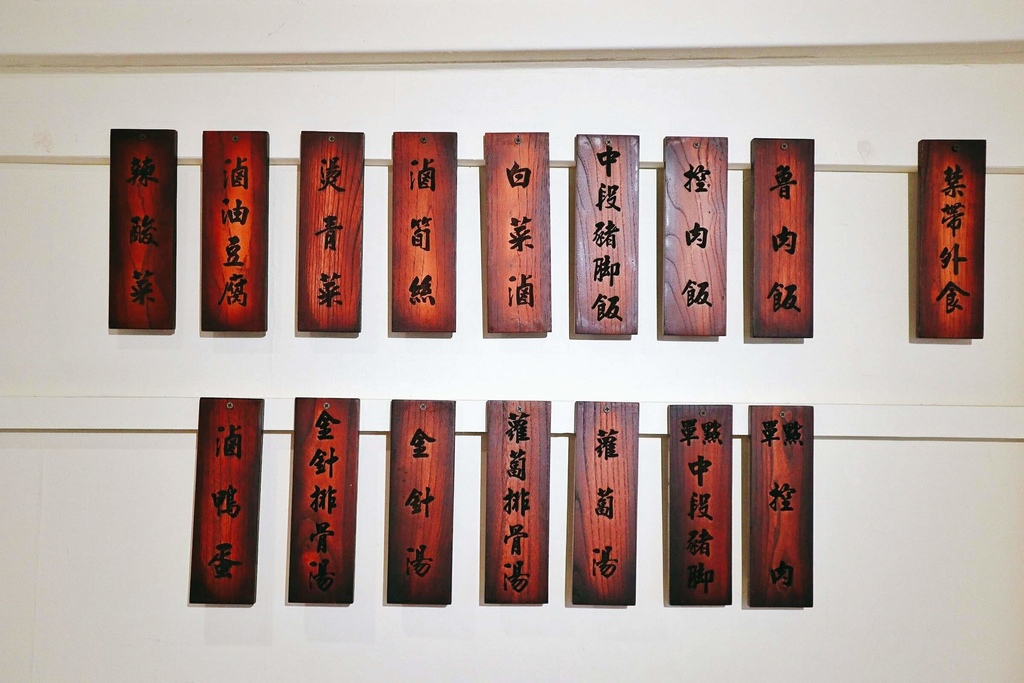 禁帶外食
魯肉飯
控肉飯
中段豬脚飯
白菜滷
滷筍絲
燙青菜
滷油豆腐
辣酸菜
單點
控肉
單點
中段豬脚
蘿蔔湯
蘿蔔排骨湯
金針湯
金針排骨湯
滷鴨蛋